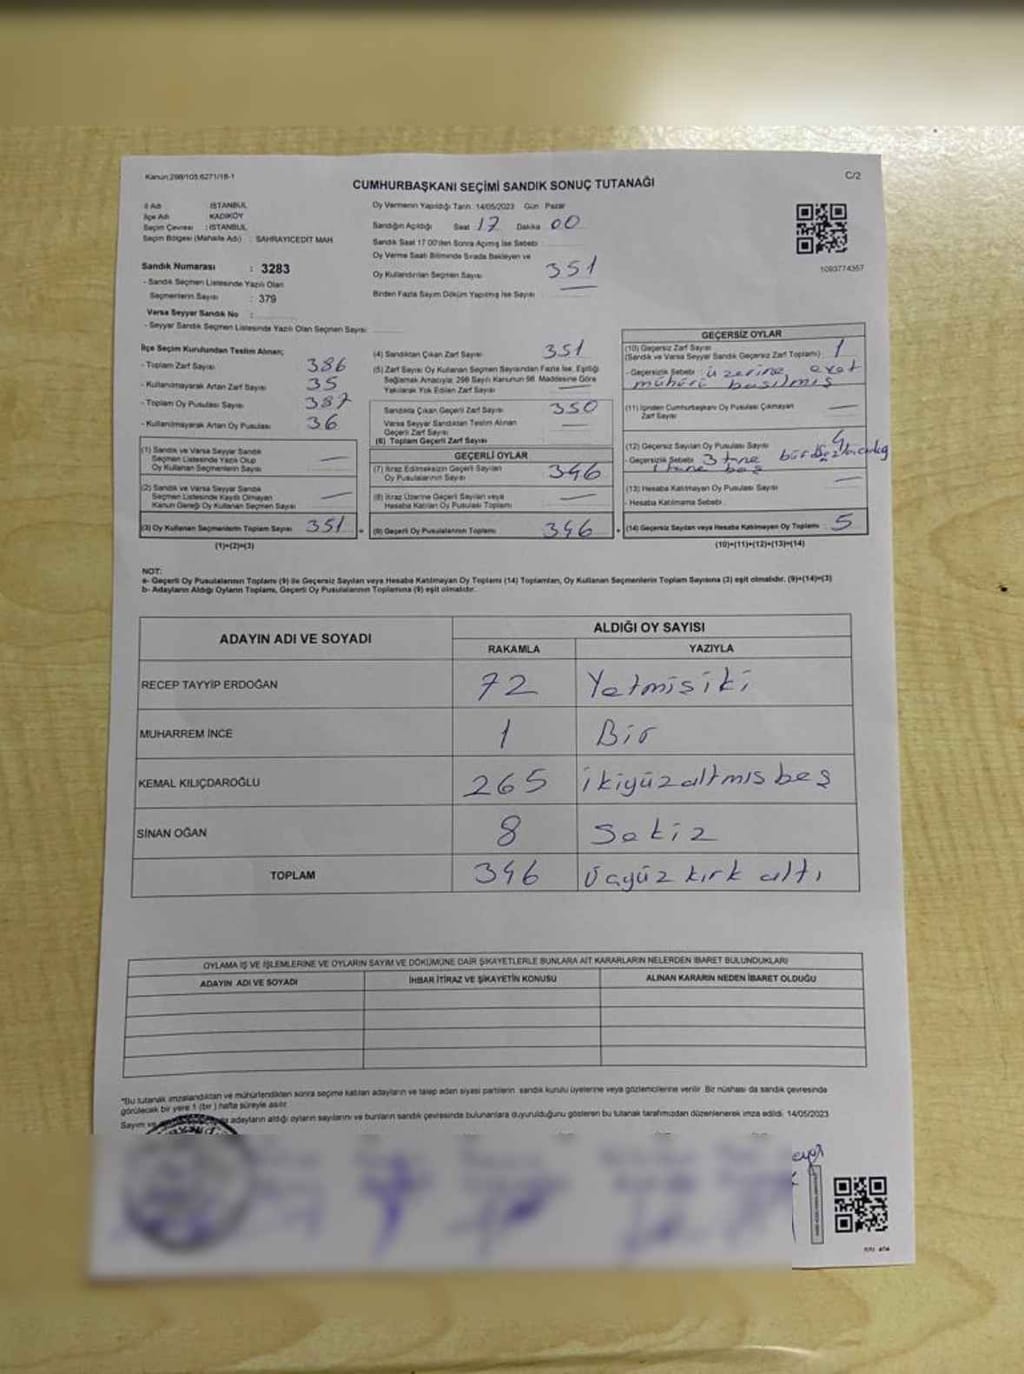 Kanun:298/105.6271/18-1
C/2
CUMHURBAŞKANI SEÇİMİ SANDIK SONUÇ TUTANAĞI
İl Adı : İSTANBUL
İlçe Adı : KADIKÖY
Seçim Çevresi : İSTANBUL
Seçim Bölgesi (Mahalle Adı) : SAHRAYICEDİT MAH
Sandık Numarası : 3283
- Sandık Seçmen Listesinde Yazılı Olan
Seçmenlerin Sayısı : 379
Varsa Seyyar Sandık No :
- Seyyar Sandık Seçmen Listesinde Yazılı Olan Seçmen Sayısı
Oy Vermenin Yapıldığı Tarih: 14/05/2023 Gün : Pazar
Sandığın Açıldığı Saat 17 Dakika 00
Sandık Saat 17:00'den Sonra Açılmış İse Sebebi
Oy Verme Saati Bitiminde Sırada Bekleyen ve
Oy Kullandırılan Seçmen Sayısı 351
Birden Fazla Sayım Döküm Yapılmış İse Sayısı
1093774357
İlçe Seçim Kurulundan Teslim Alınan;
- Toplam Zarf Sayısı 386
- Kullanılmayarak Artan Zarf Sayısı 35
- Toplam Oy Pusulası Sayısı 387
- Kullanılmayarak Artan Oy Pusulası 36
(1) Sandık ve Varsa Seyyar Sandık
Seçmen Listesinde Yazılı Olup
Oy Kullanan Seçmenlerin Sayısı —
(2) Sandık ve Varsa Seyyar Sandık
Seçmen Listesinde Kayıtlı Olmayan
Kanun Gereği Oy Kullanan Seçmen Sayısı —
(3) Oy Kullanan Seçmenlerin Toplam Sayısı 351
(1)+(2)=(3)
(4) Sandıktan Çıkan Zarf Sayısı 351
(5) Zarf Sayısı Oy Kullanan Seçmen Sayısından Fazla İse, Eşitliği
Sağlamak Amacıyla; 298 Sayılı Kanunun 98. Maddesine Göre
Yakılarak Yok Edilen Zarf Sayısı —
Sandıkta Çıkan Geçerli Zarf Sayısı 350
Varsa Seyyar Sandıktan Teslim Alınan
Geçerli Zarf Sayısı —
(6) Toplam Geçerli Zarf Sayısı
GEÇERLİ OYLAR
(7) İtiraz Edilmeksizin Geçerli Sayılan
Oy Pusulalarının Sayısı 346
(8) İtiraz Üzerine Geçerli Sayılan veya
Hesaba Katılan Oy Pusulaları Toplamı —
(9) Geçerli Oy Pusulalarının Toplamı 346
GEÇERSİZ OYLAR
(10) Geçersiz Zarf Sayısı 1
(Sandık ve Varsa Seyyar Sandık Geçersiz Zarf Toplamı)
- Geçersizlik Sebebi : üzerine evet
mühürü basılmış
(11) İçinden Cumhurbaşkanı Oy Pusulası Çıkmayan
Zarf Sayısı —
(12) Geçersiz Sayılan Oy Pusulası Sayısı 4
- Geçersizlik Sebebi 3 tane
1 tane boş
(13) Hesaba Katılmayan Oy Pusulası Sayısı —
- Hesaba Katılmama Sebebi :
(14) Geçersiz Sayılan veya Hesaba Katılmayan Oy Toplamı 5
(10)+(11)+(12)+(13)=(14)
NOT:
a- Geçerli Oy Pusulalarının Toplamı (9) ile Geçersiz Sayılan veya Hesaba Katılmayan Oy Toplamı (14) Toplamları, Oy Kullanan Seçmenlerin Toplam Sayısına (3) eşit olmalıdır. (9)+(14)=(3)
b- Adayların Aldığı Oyların Toplamı, Geçerli Oy Pusulalarının Toplamına (9) eşit olmalıdır.
ADAYIN ADI VE SOYADI
ALDIĞI OY SAYISI
RAKAMLA YAZIYLA
RECEP TAYYİP ERDOĞAN 72 Yetmişiki
MUHARREM İNCE 1 Bir
KEMAL KILIÇDAROĞLU 265 ikiyüzaltmışbeş
SİNAN OĞAN 8 Sekiz
TOPLAM 346 Üçyüz kırk altı
OYLAMA İŞ VE İŞLEMLERİNE VE OYLARIN SAYIM VE DÖKÜMÜNE DAİR ŞİKAYETLERLE BUNLARA AİT KARARLARIN NELERDEN İBARET BULUNDUKLARI
ADAYIN ADI VE SOYADI İHBAR İTİRAZ VE ŞİKAYETİN KONUSU ALINAN KARARIN NEDEN İBARET OLDUĞU
*Bu tutanak imzalandıktan ve mühürlendikten sonra seçime katılan adayların ve talep eden siyasi partilerin sandık kurulu üyelerine veya gözlemcilerine verilir. Bir nüshası da sandık çevresinde
görülecek bir yere 1 (bir) hafta süreyle asılır.
Sayım ve adayların aldığı oyların sayılarını ve bunların sandık çevresinde bulunanlara duyurulduğunu gösteren bu tutanak tarafımızdan düzenlenerek imza edildi. 14/05/2023